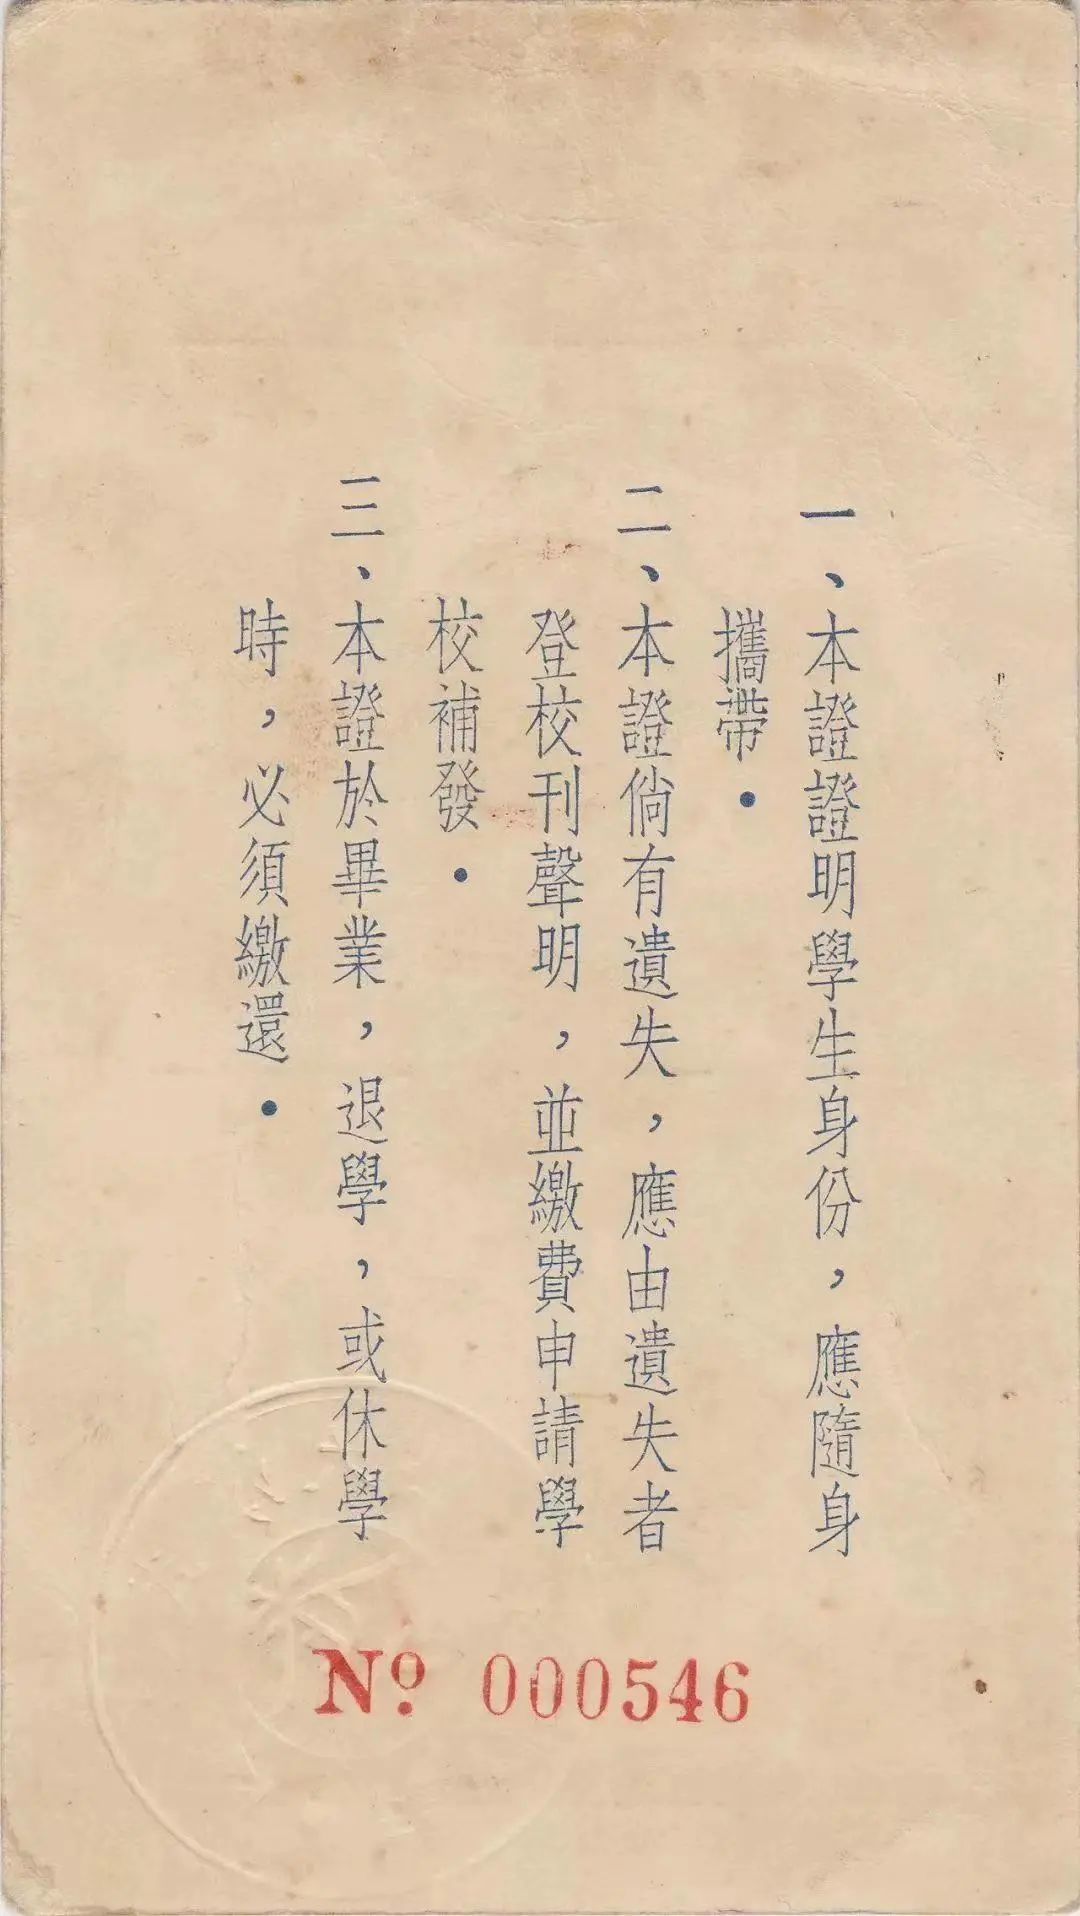 一、本證證明學生身份，應隨身
攜帶．
二、本證倘有遺失，應由遺失者
登校刊聲明，並繳費申請學
校補發．
三、本證於畢業，退學，或休學
時，必須繳還．
Nº 000546